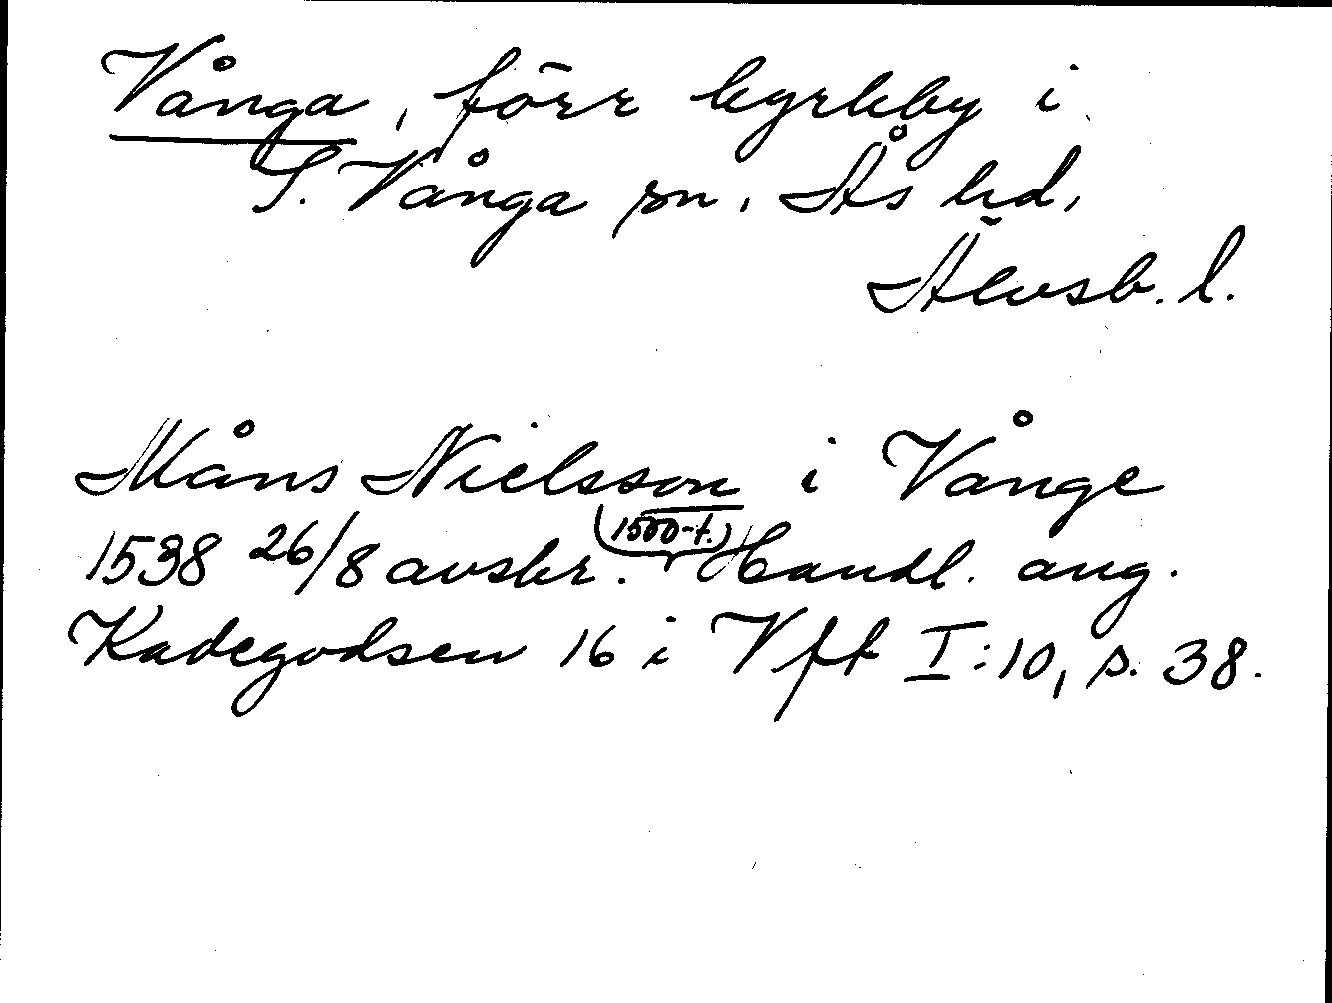 Vånga, förr kyrkby i
S. Vånga sn, Ås hd,
Älvsb. l.
Måns Nielsson i Vånge
1538 26/8 avskr. (1500-t.) Handl. ang.
Kadegodsen 16 i Vft I:10, s. 38.